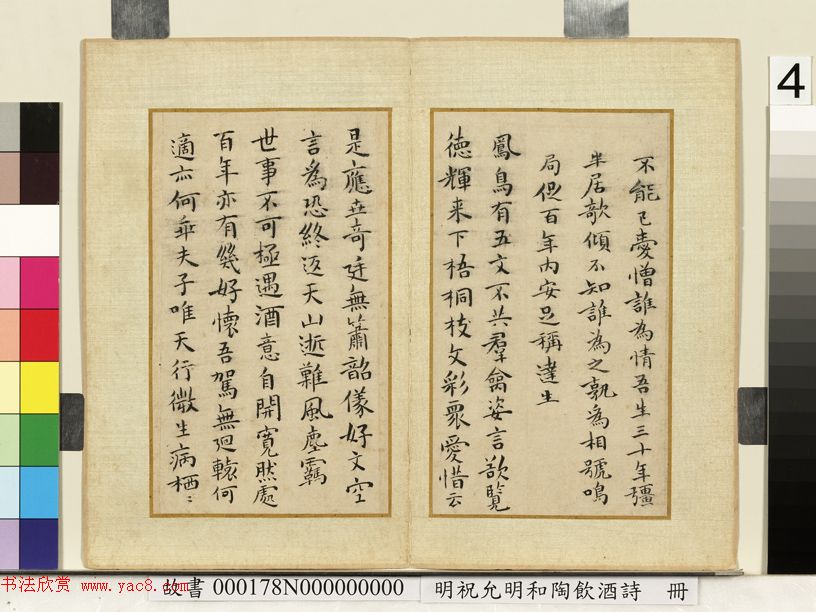 4
不能已憂憎誰為情吾生三十年彊
半居欹傾不知誰為之孰為相號鳴
局促百年內安足稱達生
鳳鳥有五文不共羣禽姿言欲覽
德輝来下梧桐枝文彩眾愛惜云
是應世奇廷無簫韶儀好文空
言為恐終返天山逝難風塵羈
世事不可極遇酒意自開寬然處
百年亦有幾好懷吾駕無迴轅何
適亦何乖夫子唯天行微生病栖〻
书法欣赏 www.yac8.com
故書 000178N000000000
明祝允明和陶飲酒詩 冊